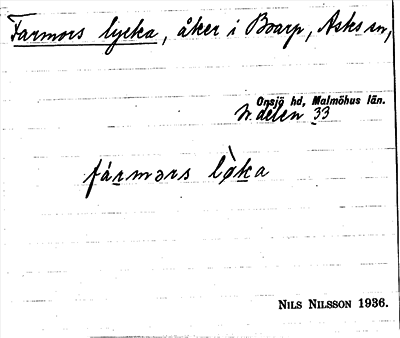 Farmors lycka, åker i Boarp, Asks sn,
Onsjö hd, Malmöhus län.
N. delen 33
fàrmors lø̀ka
NILS NILSSON 1936.